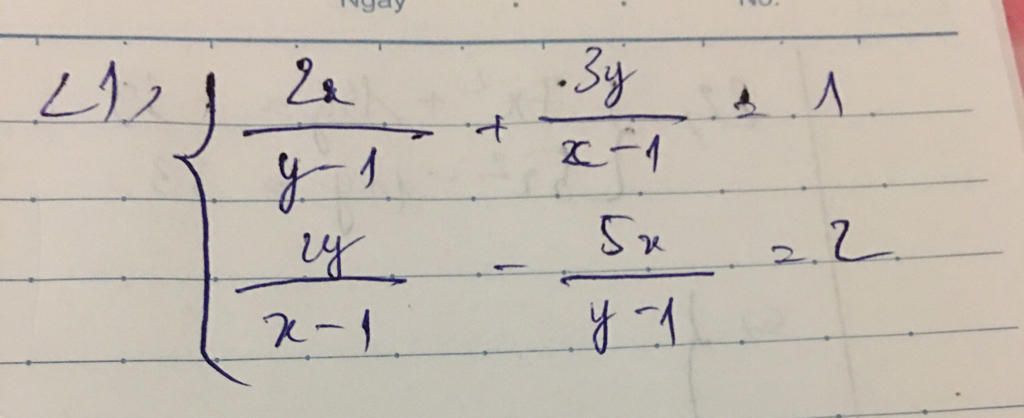 Ngày No.
<1> { 2x/(y-1) + 3y/(x-1) = 1
2y/(x-1) - 5x/(y-1) = 2